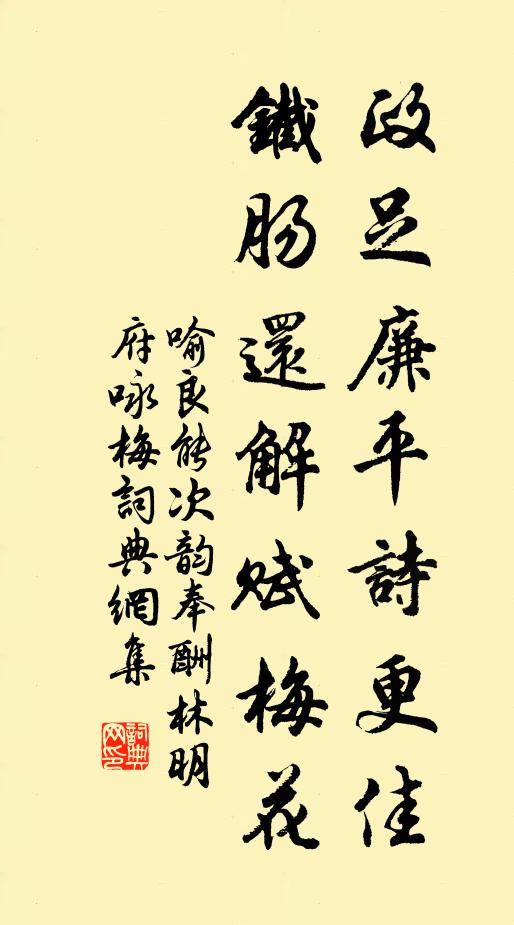 政足廉平詩更佳
鐵腸還解賦梅花
喻良能次韵奉酬林明
府咏梅詞典網集
詞典网印